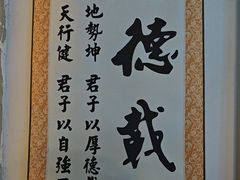 德載
地勢坤 君子以厚德載
天行健 君子以自強